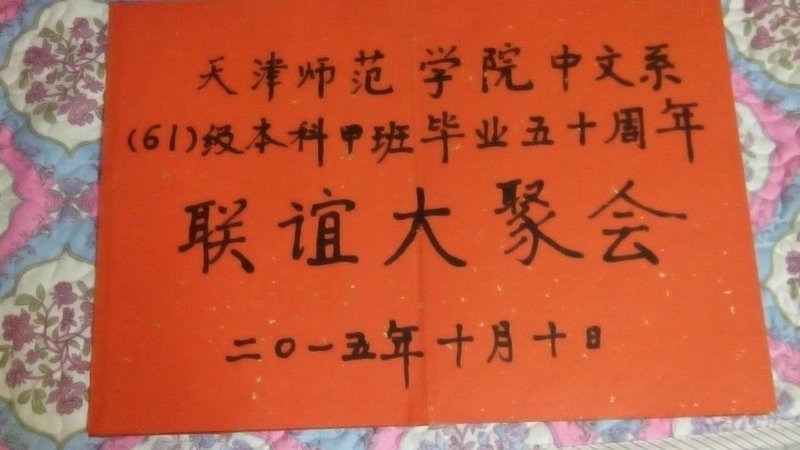 天津师范学院中文系
(61)级本科甲班毕业五十周年
联谊大聚会
二〇一五年十月十日